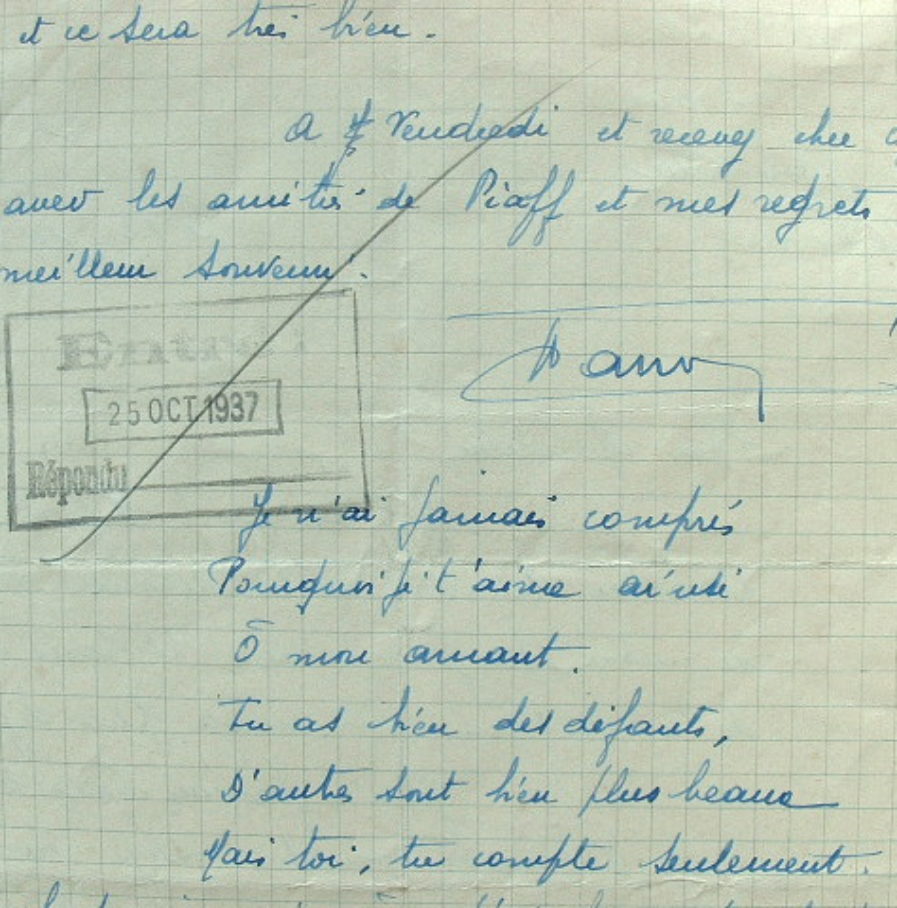 et ce sera très bien.
A Vendredi et recevez cher
avec les amitiés de Piaff et mes regrets
meilleur souvenir.
Entré
25 OCT. 1937
Répondu
Je n'ai jamais compris
Pourquoi je t'aime ainsi
Ô mon amant.
Tu as bien des défauts,
D'autres sont bien plus beaux
Mais toi, tu compte seulement.